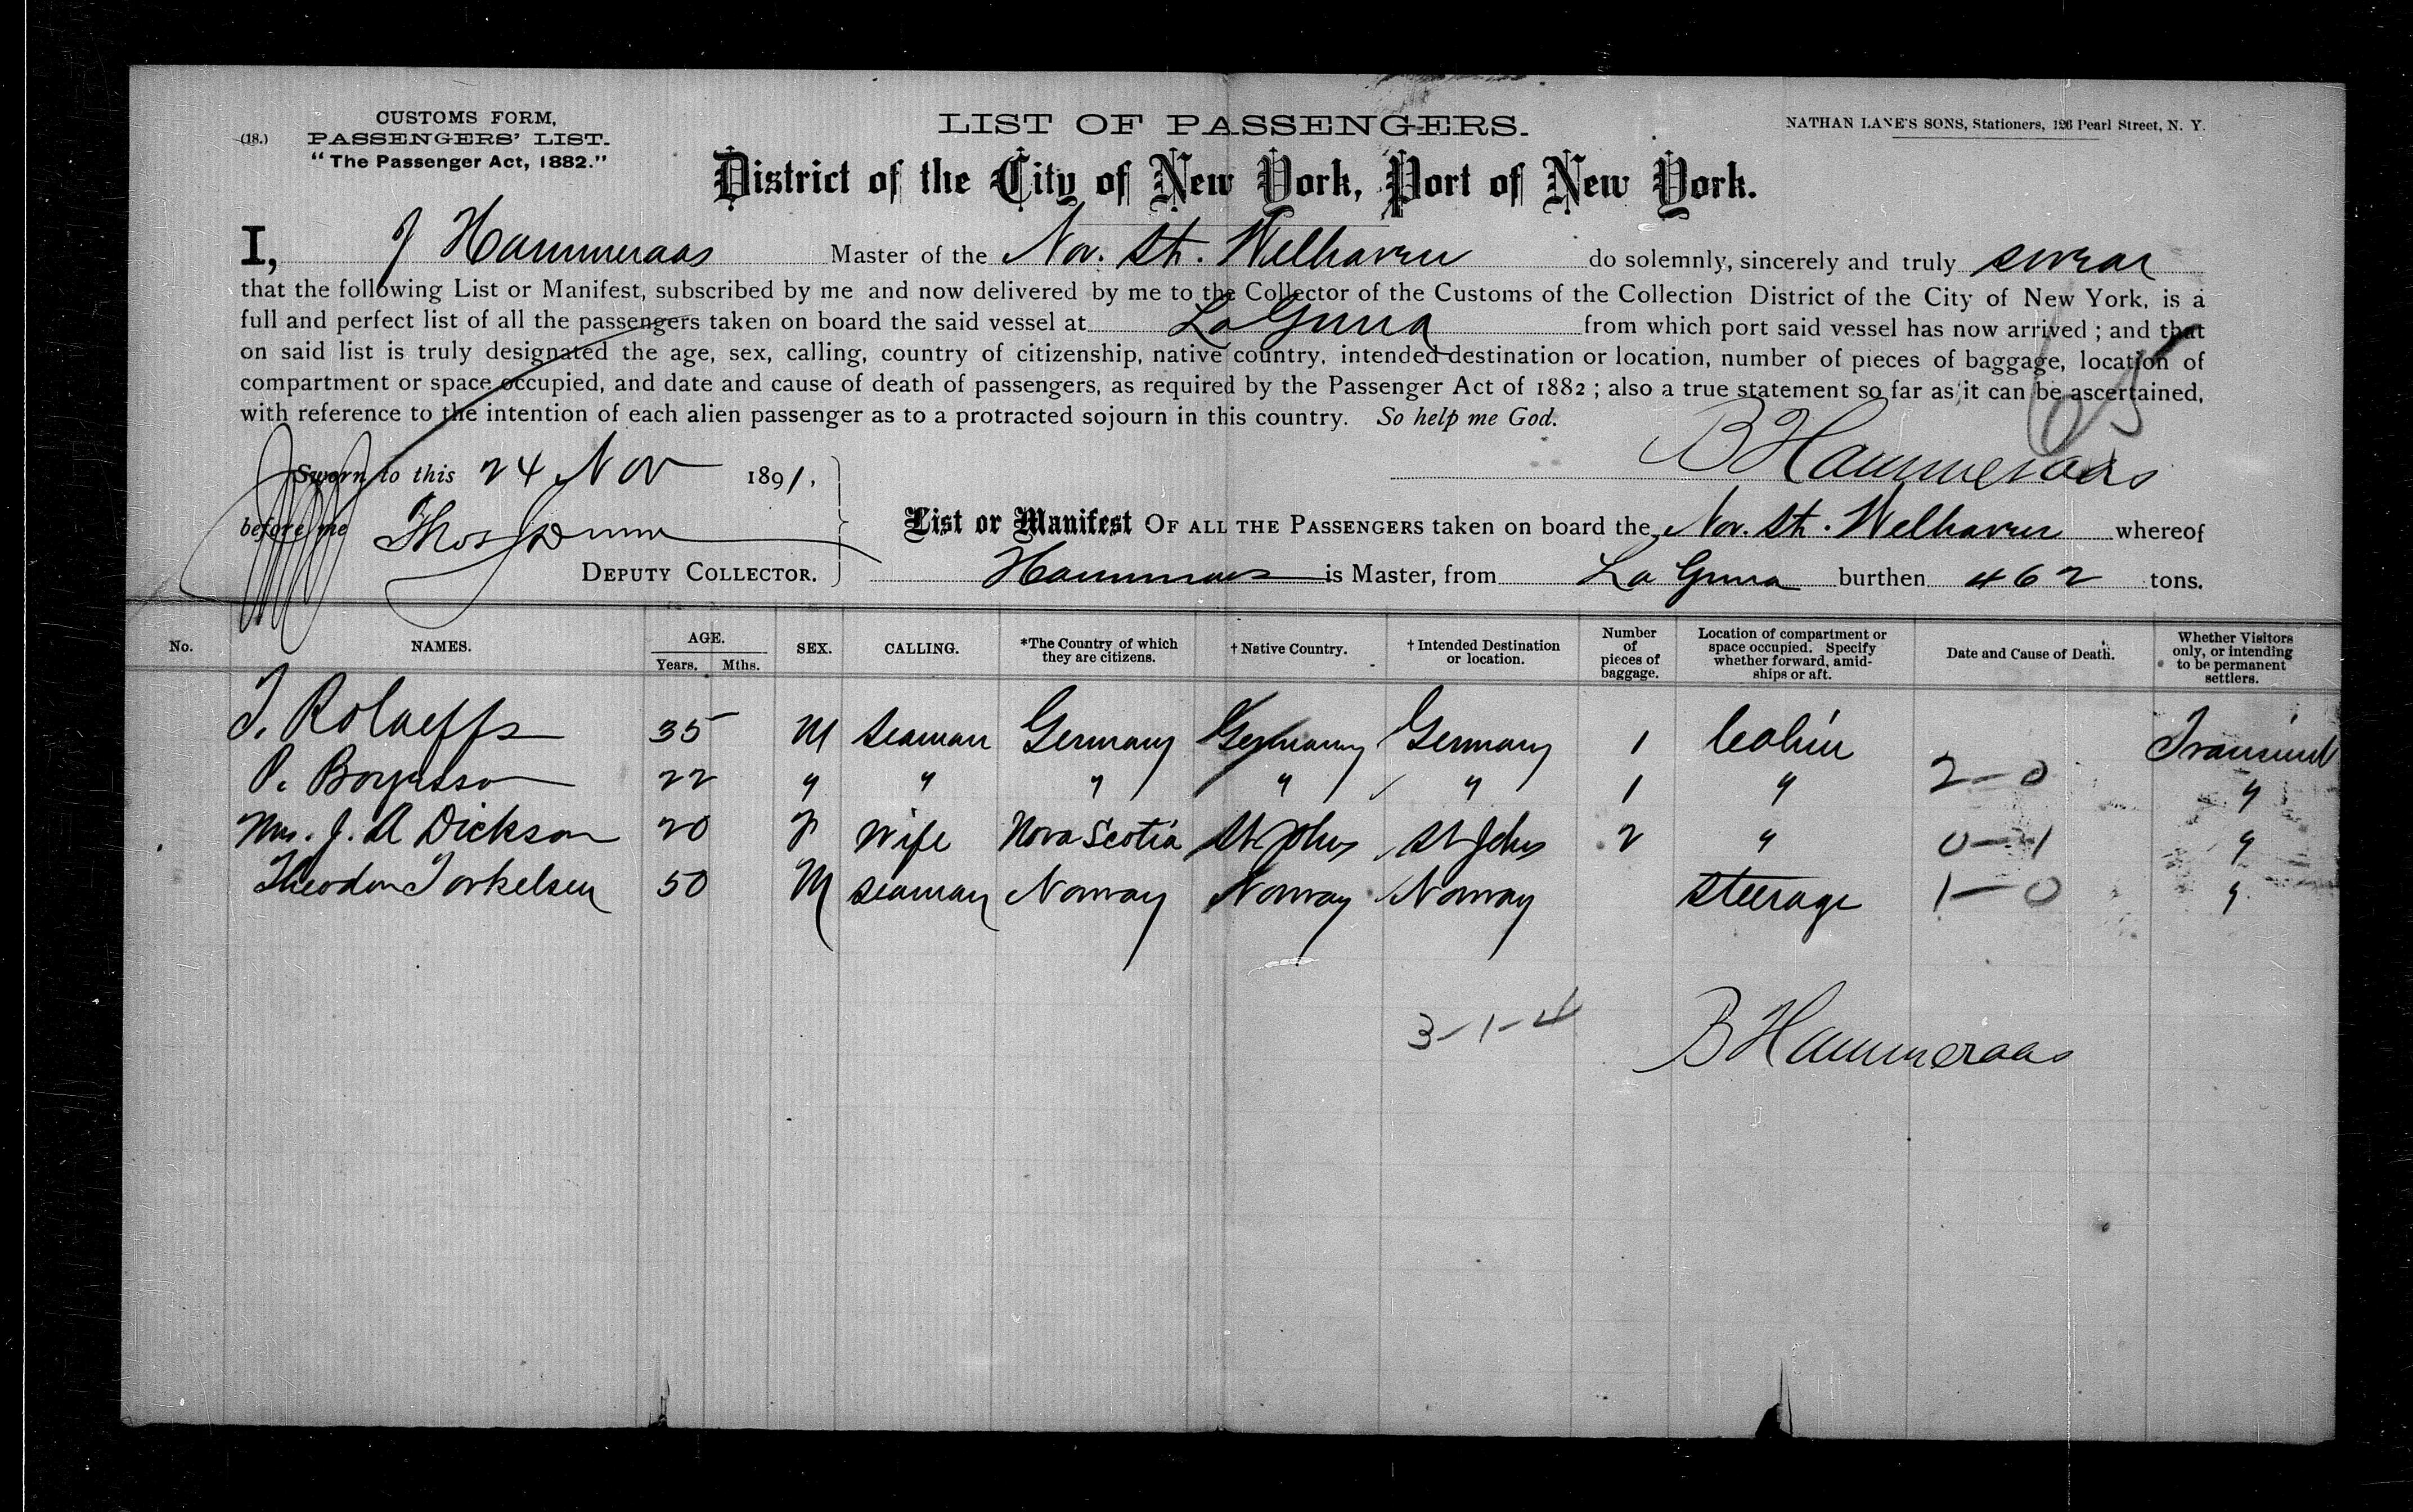 CUSTOMS FORM,
(18.) PASSENGERS' LIST.
"The Passenger Act, 1882."
LIST OF PASSENGERS.
NATHAN LANE'S SONS, Stationers, 126 Pearl Street, N. Y.
District of the City of New York, Port of New York.
I, J Hammeraas Master of the Nor. St. Welhaven do solemnly, sincerely and truly swear
that the following List or Manifest, subscribed by me and now delivered by me to the Collector of the Customs of the Collection District of the City of New York, is a
full and perfect list of all the passengers taken on board the said vessel at La Guira from which port said vessel has now arrived ; and that
on said list is truly designated the age, sex, calling, country of citizenship, native country, intended destination or location, number of pieces of baggage, location of
compartment or space occupied, and date and cause of death of passengers, as required by the Passenger Act of 1882 ; also a true statement so far as it can be ascertained,
with reference to the intention of each alien passenger as to a protracted sojourn in this country. So help me God.
B Hammeraas
Sworn to this 24 Nov 1891,
before me Thos Dunn
DEPUTY COLLECTOR.
List or Manifest OF ALL THE PASSENGERS taken on board the Nor. St. Welhaven whereof
Hammeraas is Master, from La Guira burthen 462 tons.
No. NAMES. AGE. Years. Mths. SEX. CALLING. *The Country of which they are citizens. † Native Country. † Intended Destination or location. Number of pieces of baggage. Location of compartment or space occupied. Specify whether forward, amid-ships or aft. Date and Cause of Death. Whether Visitors only, or intending to be permanent settlers.
35 M Seaman Germany Germany Germany 1 Cabin Transient
P. 22 " " " " " 1 " 2-0 "
Mrs. J. A Dickson 20 F Wife Nova Scotia St Johns St Johns 2 " 0-1 "
Theodor Torkelsen 50 M Seaman Norway Norway Norway Steerage 1-0 "
3-1-4
B Hammeraas